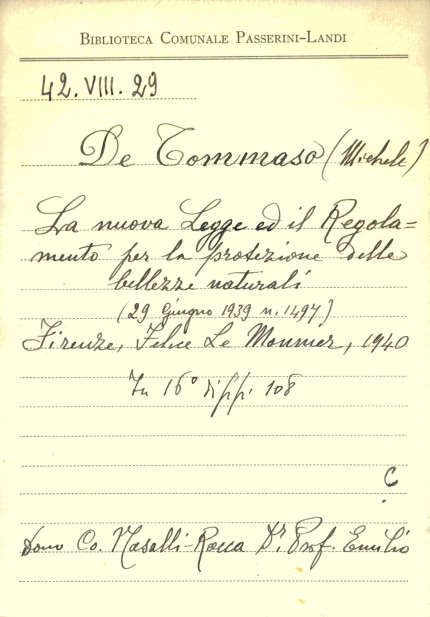 BIBLIOTECA COMUNALE PASSERINI-LANDI
42. VIII. 29
De Tommaso (Michele)
La nuova Legge ed il Regola=
mento per la protezione delle
bellezze naturali
(29 Giugno 1939 n. 1497)
Firenze, Felice Le Monnier, 1940
In 16° di pp. 108
C
Dono Co. Nasalli-Rocca Dr. Prof. Emilio